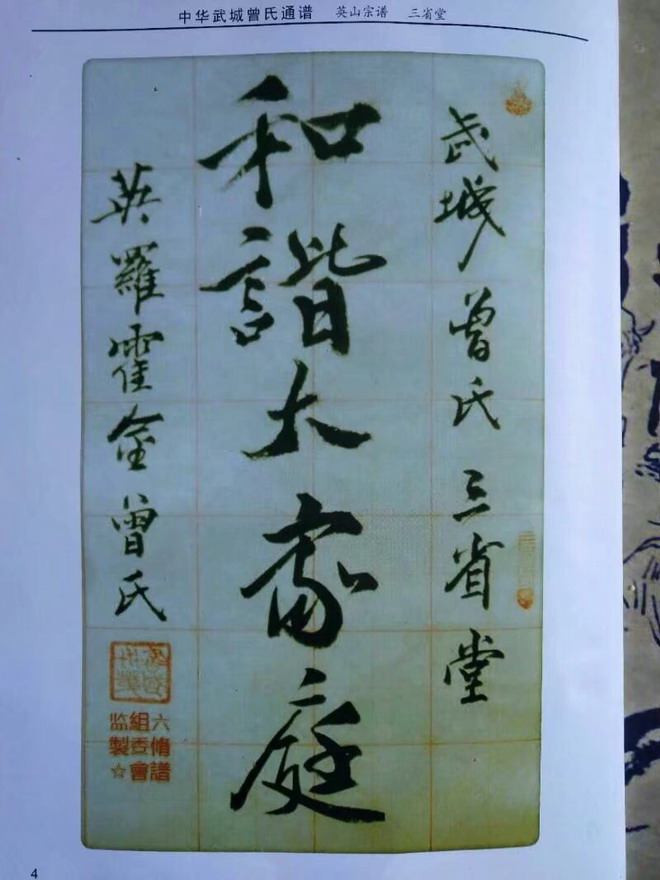 中华武城曾氏通谱 英山宗谱 三省堂
武城曾氏三省堂
和諧大家庭
英羅霍金曾氏
六脩譜
組委會
监製☆
4